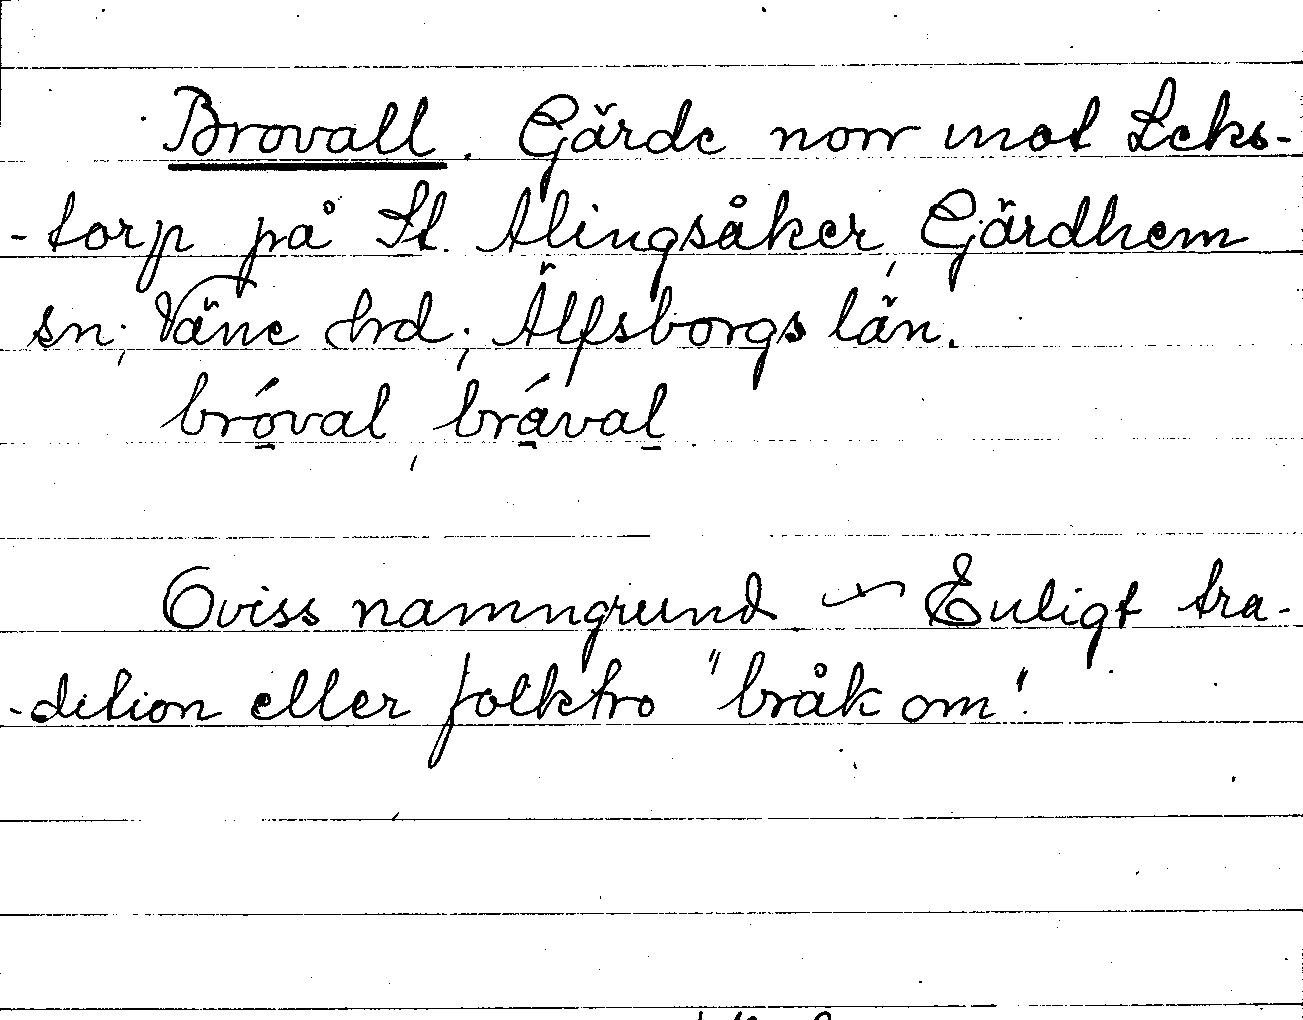 Brovall. Gärde norr mot Leks-
-torp på St. Alingsåker, Gärdhem
sn; Väne hrd; Älfsborgs län.
bróval, brával
Oviss namngrund. ~ Enligt tra-
-dition eller folktro "bråk om".